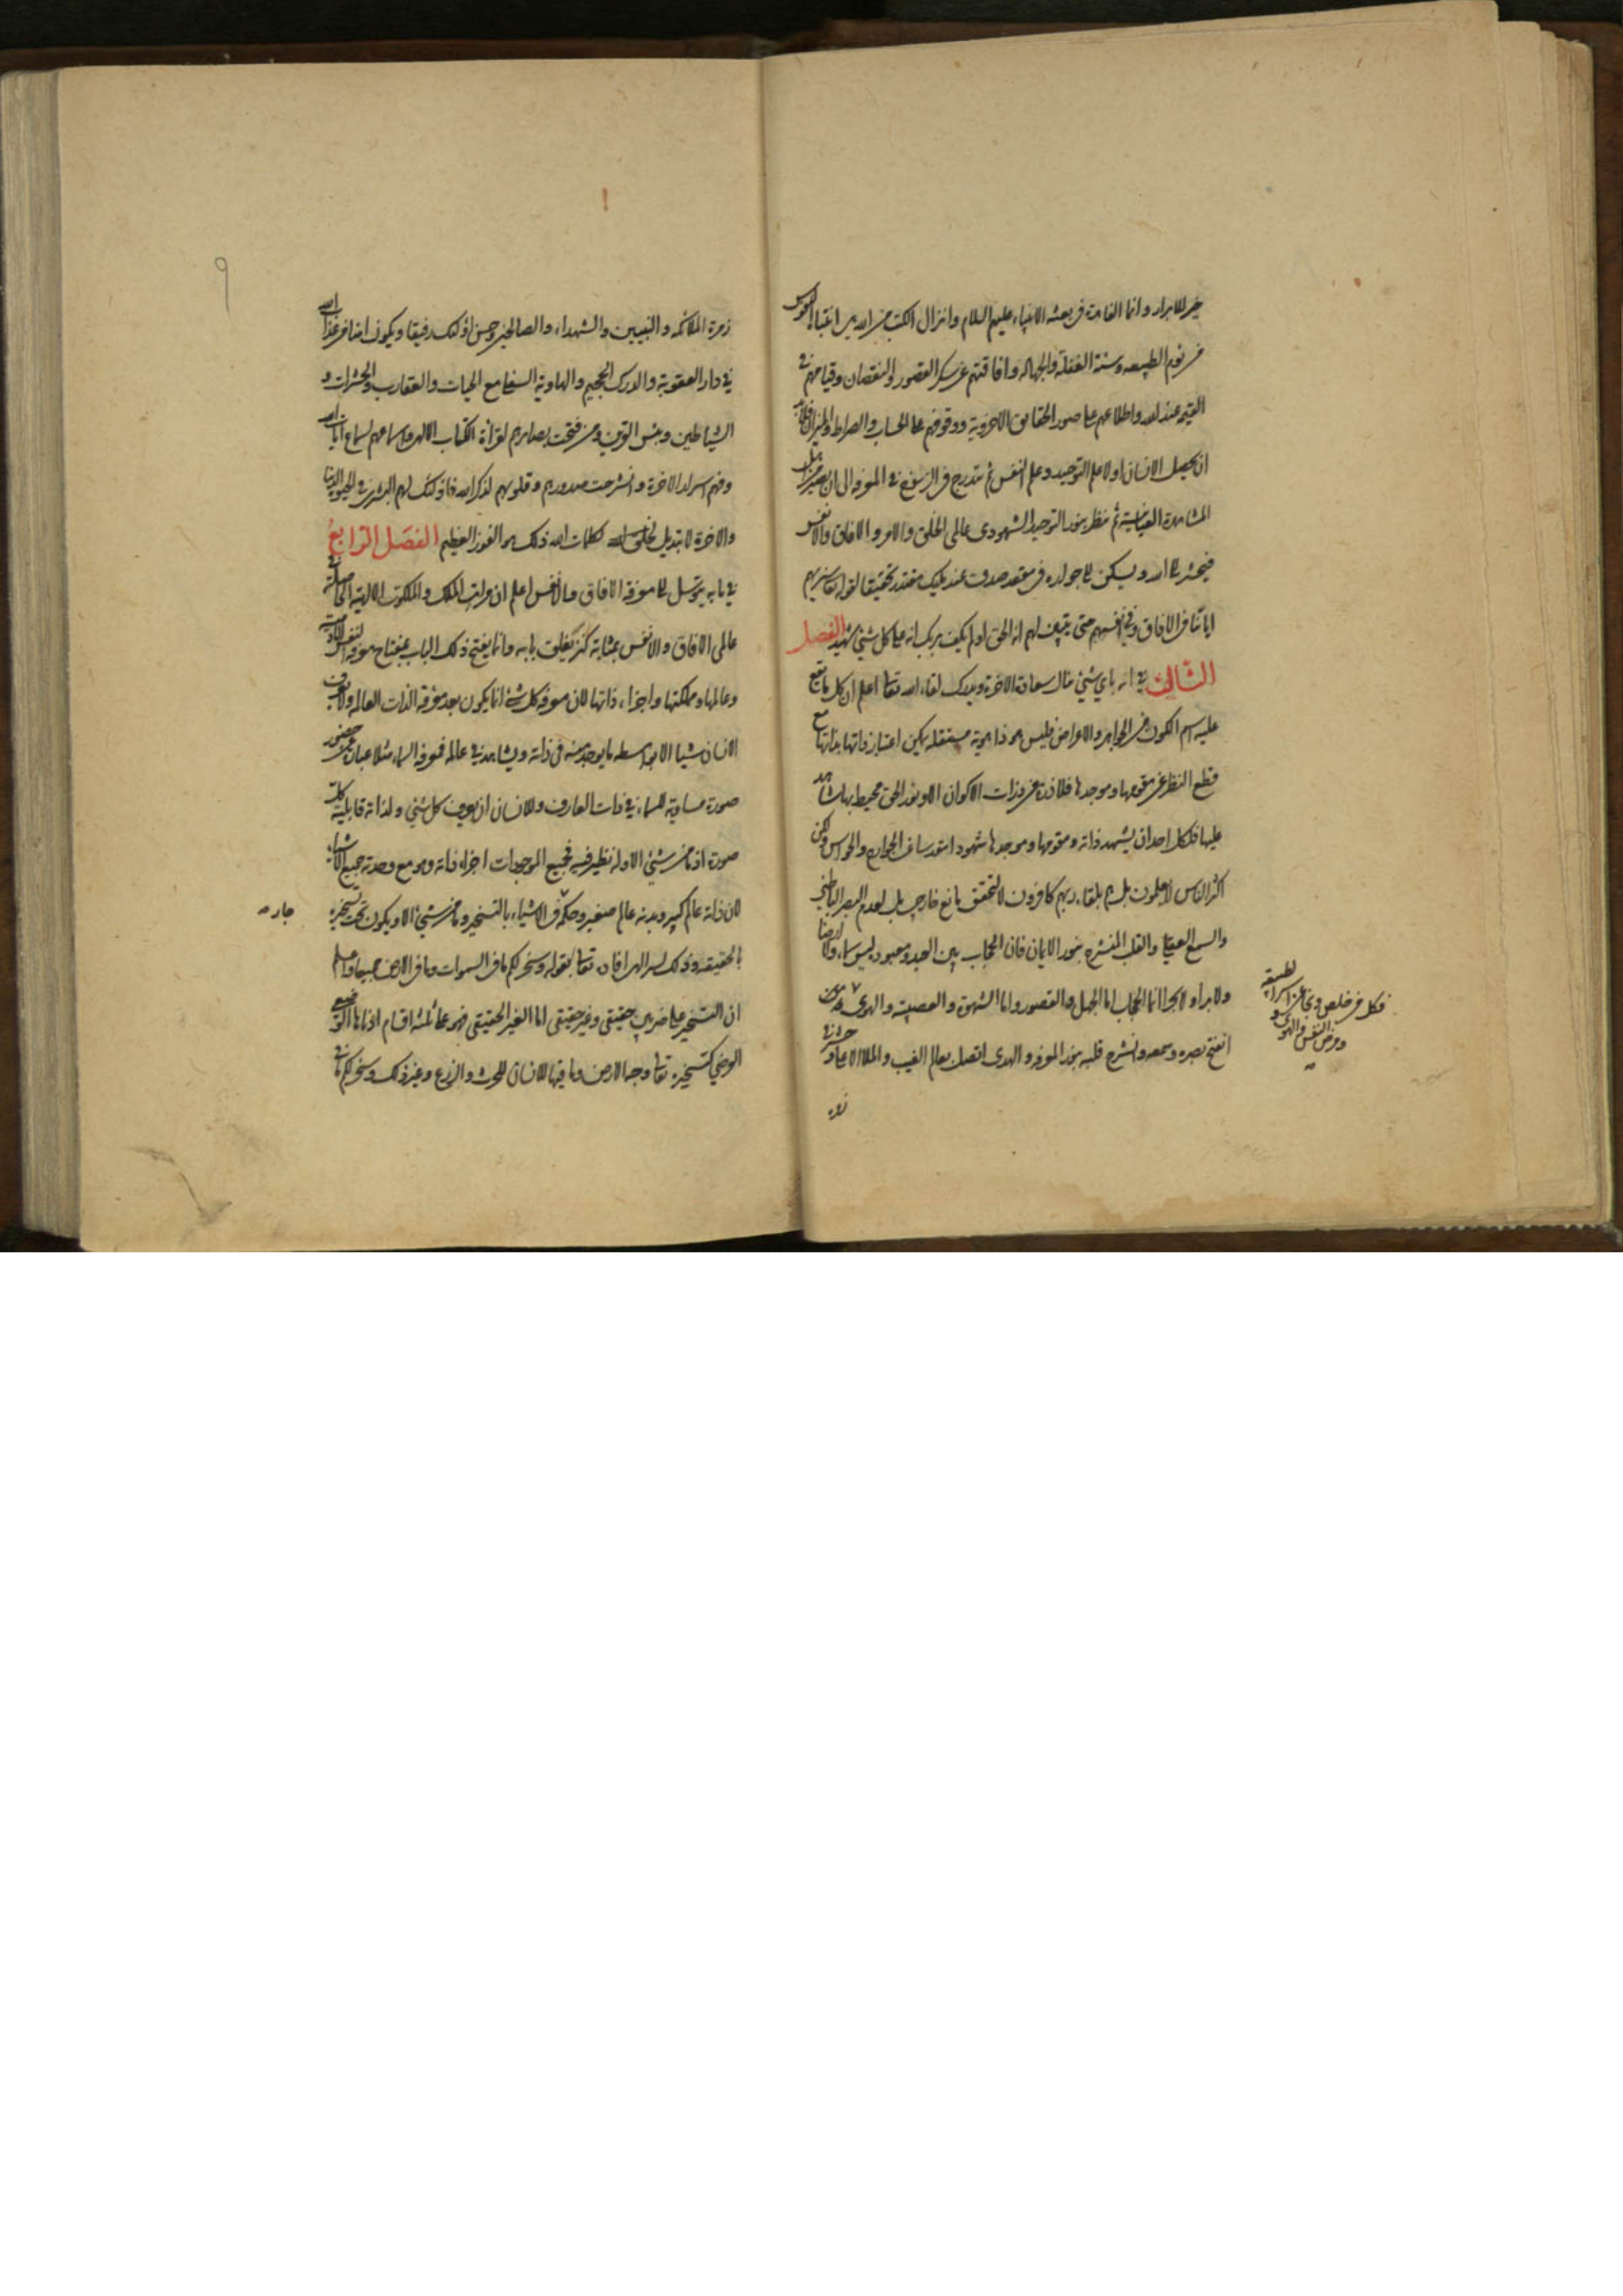 خير للابرار وانما الفائدة في بعثه الانبياء عليهم السلام وانزال الكتب من الله هي انتباه النفوس
من نوم الطبيعه وسنة الغفلة والجهاله وافاقتهم عن سكر القصور والنقصان وقيامهم في
القيمة عند الله واطلاعهم على صور الحقايق الاخروية ووقوفهم على الحساب والصراط والميزان فلابد
ان يحصل الانسان اولا علم التوحيد وعلم النفس ثم يتدرج في الرسوخ في المعرفه الى ان يصير من اهل
المشاهدة العيانية ثم ينظر بنور التوحيد الشهودى عالمى الخلق والامر والافاق والانفس
فيحشر الى الله ويسكن الى جواره في مقعد صدق عند مليك مقتدر تحقيقا لقوله تعالى سنريهم
اياتنا في الافاق وفي انفسهم حتى يتبين لهم انه الحق اولم يكف بربك انه على كل شئ شهيد الفصل
الثالث في انه باي شئ ينال سعادة الاخرة ويدرك لقاء الله تعالى اعلم ان كل ما يقع
عليه اسم الكون من الجواهر والاعراض فليس هو ذا هوية مستقله يمكن اعتبار ذاتها بذاتها مع
قطع النظر عن مقومها وموجدها فلا ذرة من ذرات الاكوان الا ونور الحق محيط بها شاهد
عليها فلكل احد ان يشهد ذاته ومقومها وموجدها شهودا بقدر ساير الجوارح والحواس ولكن
اكثر الناس لا يعلمون بل هم بلقاء ربهم كافرون لا لتحقق مانع خارجي بل لعدم البصر الباطني
والسمع العقلي والقلب المنشرح بنور الايمان فان الحجاب بين العبد ومعبوده ليس سماء ولا ارضا
ولا برا ولا بحرا انما الحجاب اما الجهل والقصور واما الشهوة والمعصية والهوى ومن
انفتح بصره وسمعه وانشرح قلبه بنور المعرفه والهدى اتصل بعالم الغيب والملا الاعلى وحشر في
زمرة
فكل من خلص ونجا من اسر الطبيعة
ومرض النفس والهوى
زمرة الملائكه والنبيين والشهداء والصالحين وحسن اولئك رفيقا ويكون امنا من عذاب الله
في دار العقوبة والدرك الجحيم والهاوية السفلى مع الحيات والعقارب والحشرات و
الشياطين وبئس القرين ومن فتحت بصايرهم لقراءة الكتاب الالهى واسماعهم لسماع ايات الله
وفهم اسرار الاخرة وانشرحت صدورهم وقلوبهم لذكر الله فاولئك لهم البشرى في الحيوة الدنيا
والاخرة لا تبديل لكلمات الله ذلك هو الفوز العظيم الفصل الرابع
في ما به يتوسل الى معرفة الافاق والانفس اعلم ان مراتب الملك والملكوت الالهية الحاصلة في
عالمى الافاق والانفس بمثابة كنز يغلق بابه وانما يفتح ذلك الباب بمفتاح معرفه النفس الادمية
وعالمها ومملكتها واجزاء ذاتها لان معرفة كل شئ انما يكون بعد معرفة الذات العالمه ولا يعرف
الانسان شيئا الا بواسطه ما يوجد منه في ذاته ويشاهد في عالمه فمعرفة السماء مثلا عبارة عن حضور
صورة مساوية للسماء في ذات العارف وللانسان ان يعرف كل شئ ولذاته قابلية كل
صورة اذ ما من شئ الا وله نظير فيه فجميع الموجودات اجزاء ذاته وهو مع وحدته جميع الاشياء
لان ذاته عالم كبير وبدنه عالم صغير وحكمه في الاشياء بالتسخير وما من شئ الا ويكون تحت تسخيره
جار
بالحقيقه وذلك لسر الهى افاده تعالى بقوله وسخر لكم ما في السموات وما في الارض جميعا واعلم
ان التسخير على ضربين حقيقى وغير حقيقى اما الغير الحقيقى فهو على ثلثة اقسام ادناها الوضعي
الوضعي كتسخيره تعالى وجه الارض وما فيها للانسان للحرث والزرع وغير ذلك وسخر لكم ما في
٩